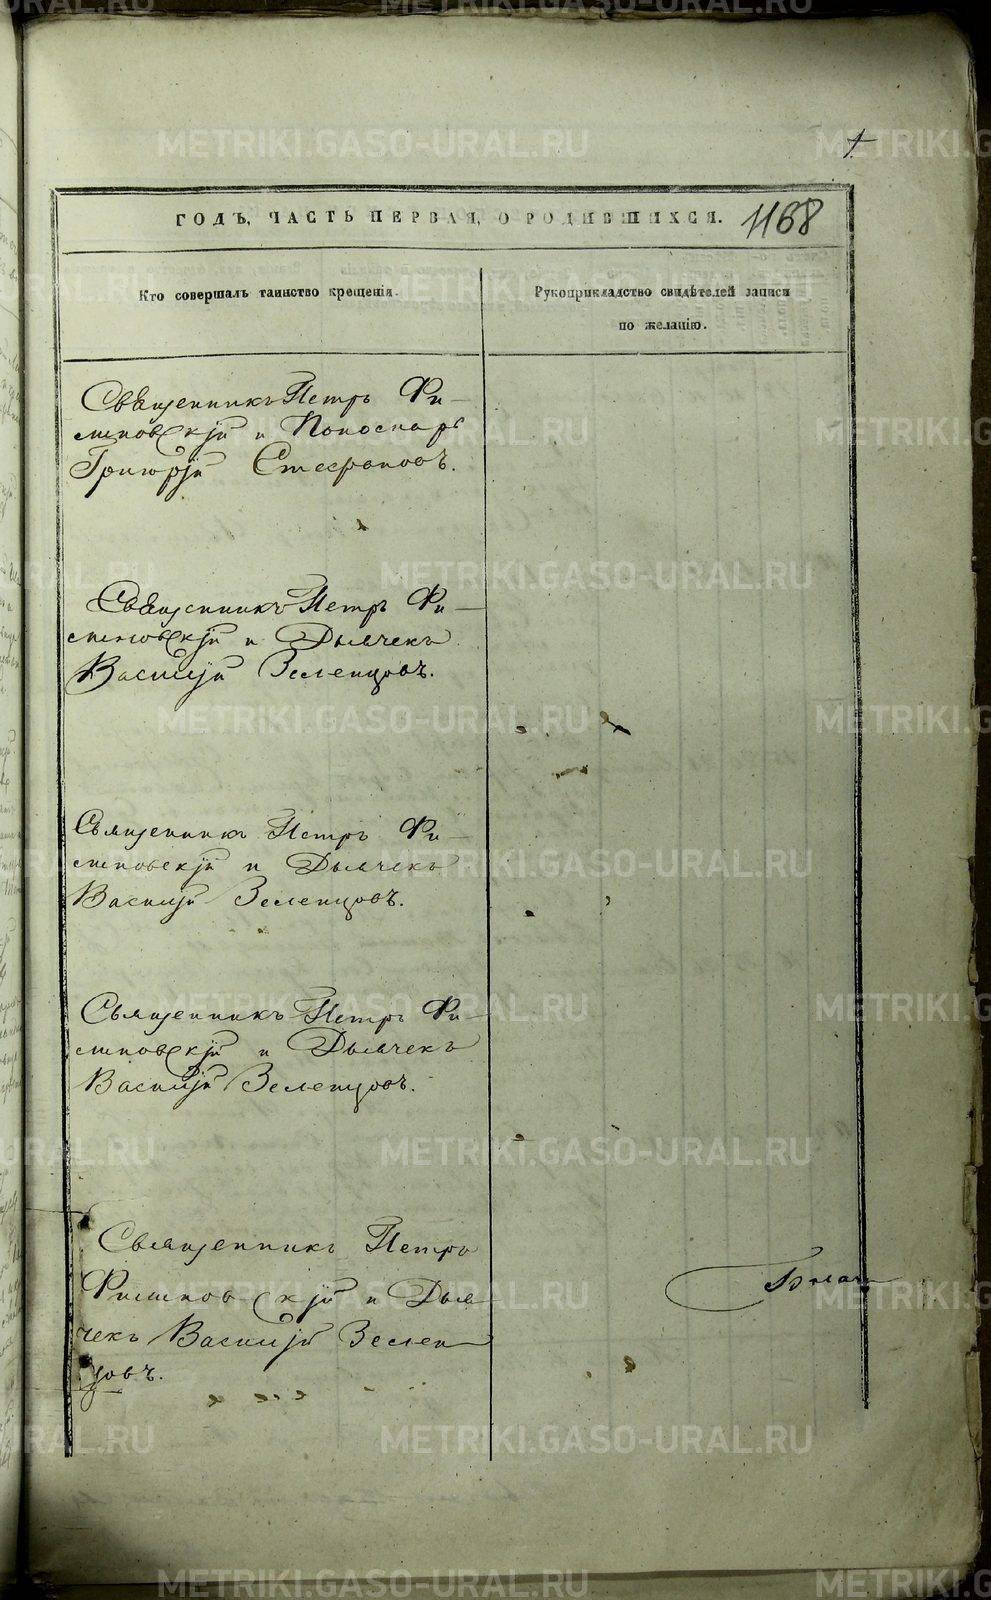 ГОДЪ, ЧАСТЬ ПЕРВАЯ, О РОДИВШИХСЯ. 1168
Кто совершалъ таинство крещенія.
Рукоприкладство свидѣтелей записи
по желанію.
Священникъ Петръ Фи-
липовскій и Пономарь
Григорій Стефановъ.
Священникъ Петръ Фи-
липовскій и Дьячекъ
Василій Зеленцовъ.
Священникъ Петръ Фи-
липовскій и Дьячекъ
Василій Зеленцовъ.
Священникъ Петръ Фи-
липовскій и Дьячекъ
Василій Зеленцовъ.
Священникъ Петръ
Филиповскій и Дья-
чекъ Василій Зелен-
цовъ.
METRIKI.GASO-URAL.RU